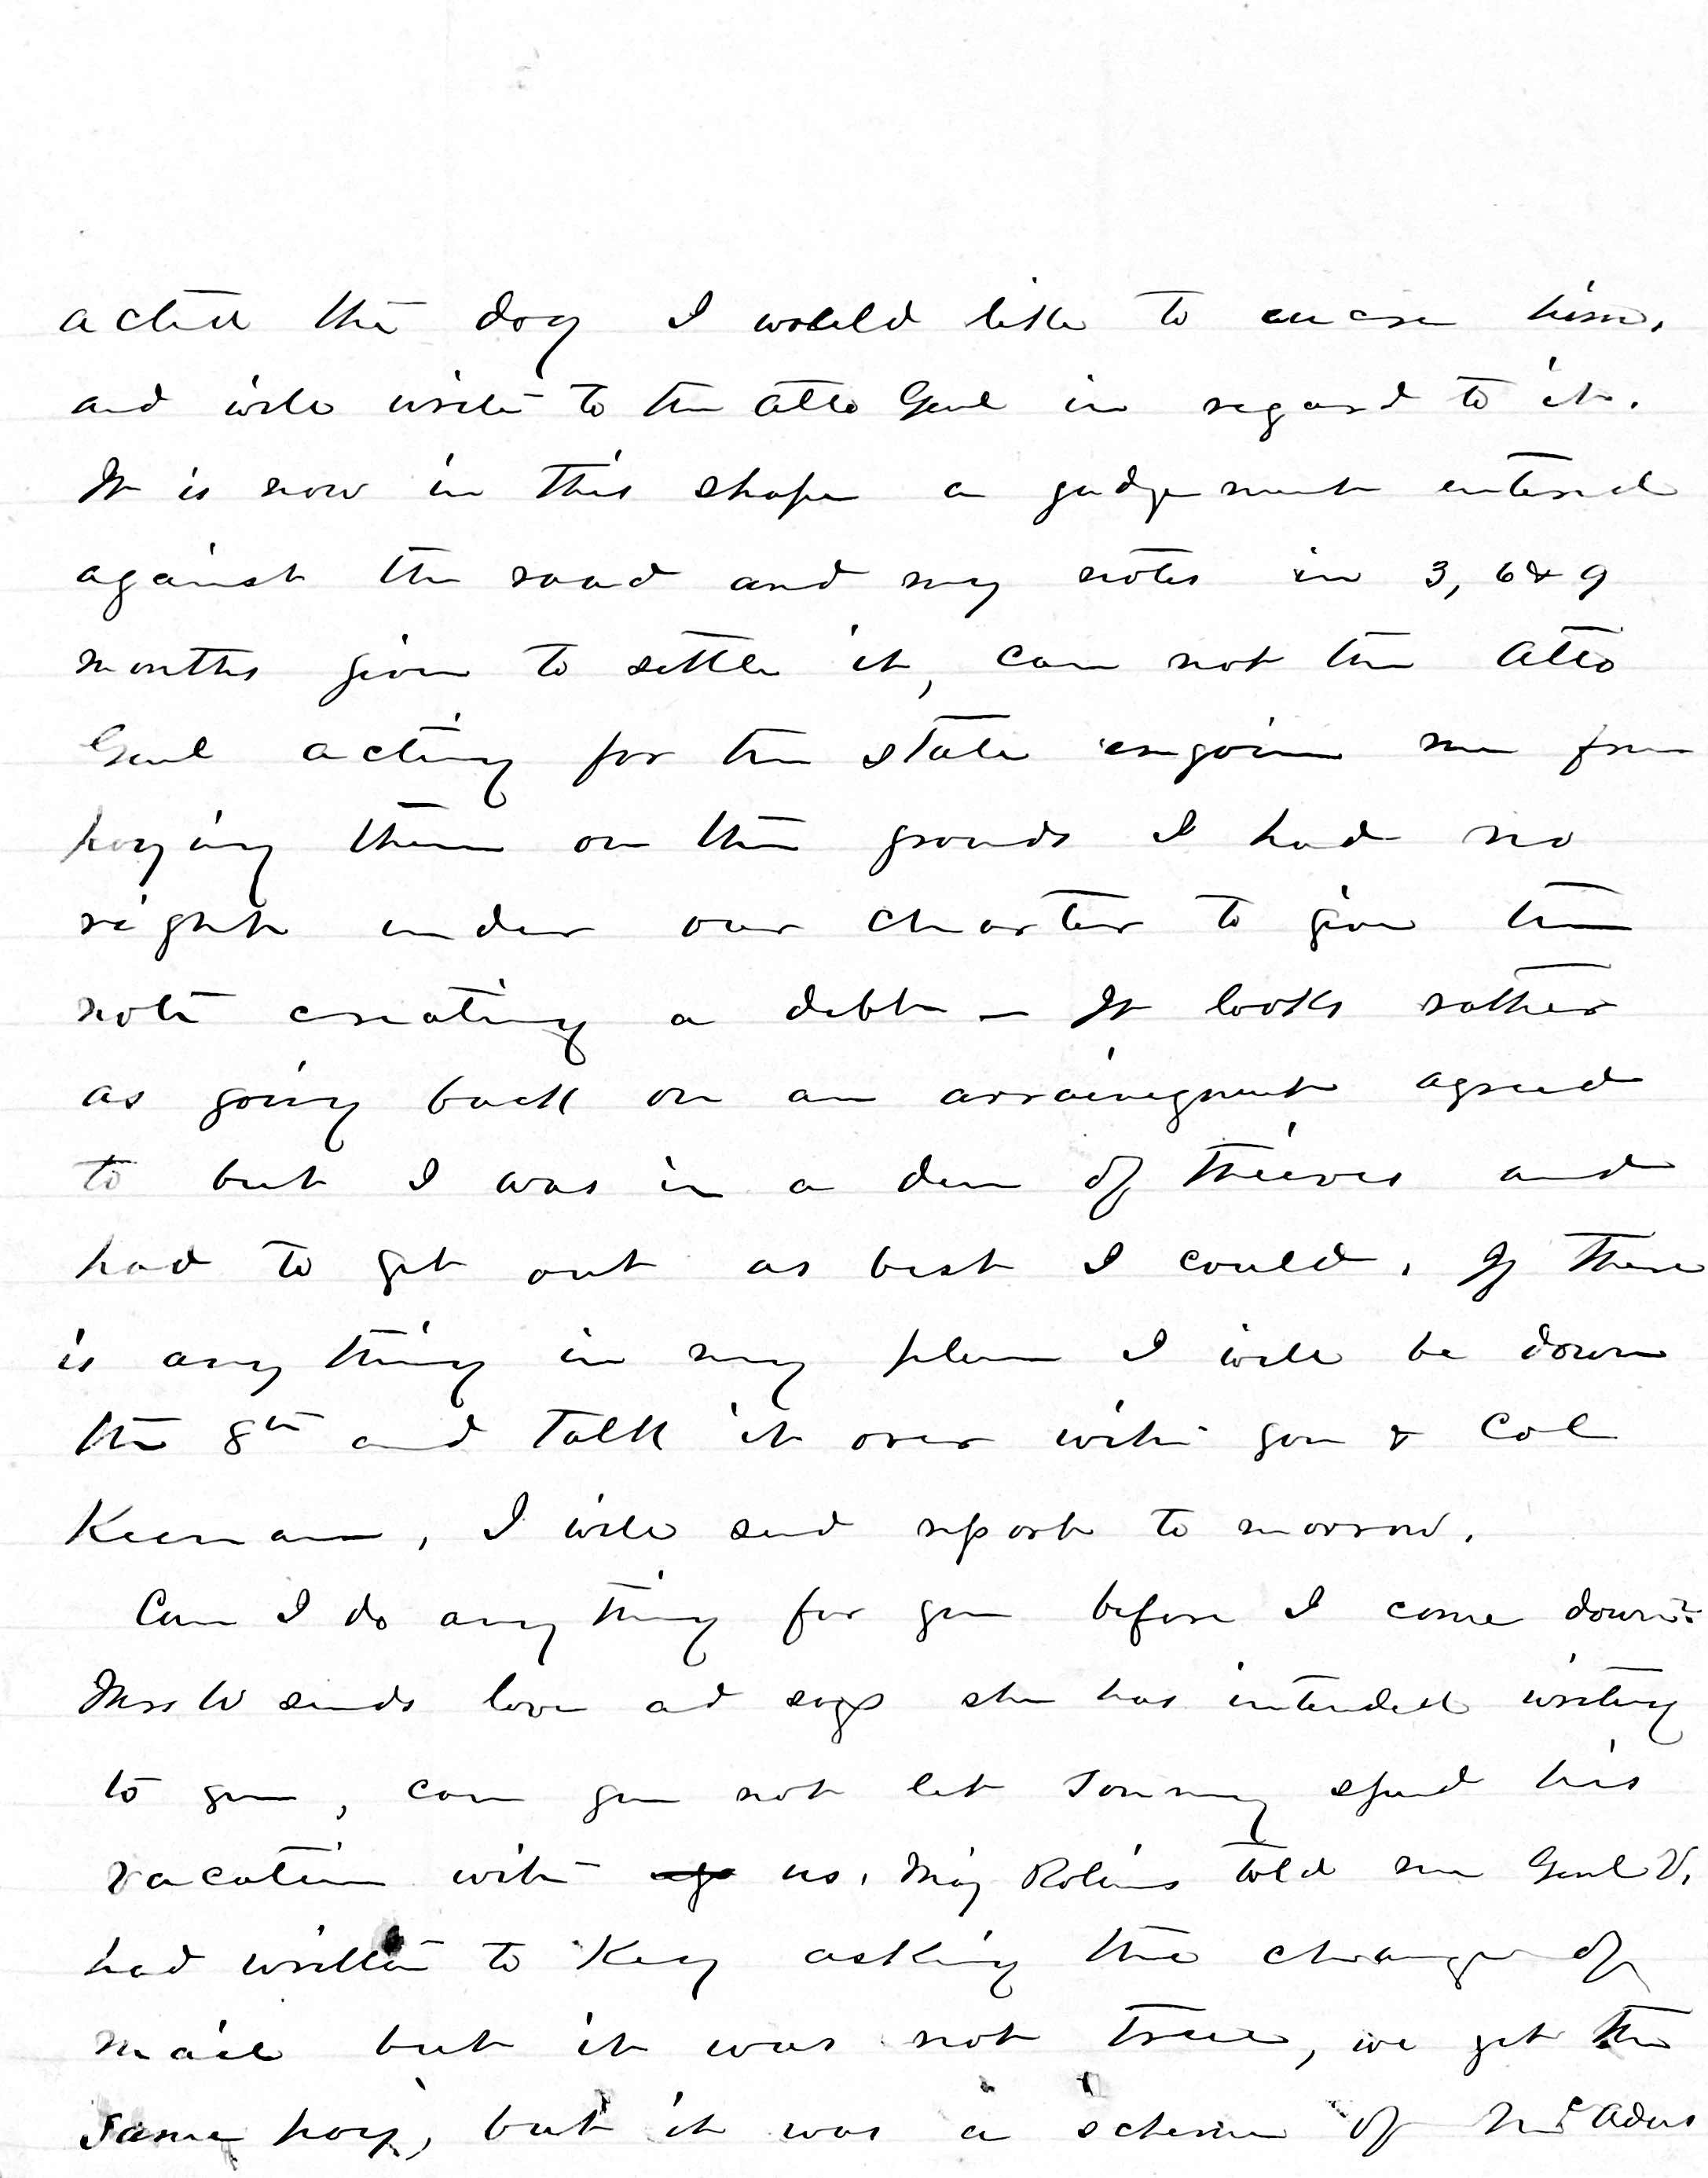 acted the dog I would like to him,
and will write to the Atto Genl in regard to it.
It is now in this shape a judgement entered
against the road and my notes in 3, 6 & 9
months given to settle it, can not the Atto
Genl acting for the State enjoin me from
paying them on the grounds I had no
right under our charter to give the
note creating a debt – It looks rather
as going back on an arraingment agreed
to but I was in a den of thieves and
had to get out as best I could. If there
is any thing in my plan I will be down
the 8th and talk it over with you & Col
Keenan, I will send report to morrow.
Can I do any thing for you before I come down?
Mrs W sends love ad says she has intended writing
to you, can you not let Tommy spend his
vacation with us. Maj Robins told me Genl V.
had written to Key asking the change of
mail but it was not true, we get the
same pay, but it was a scheme of McAdus